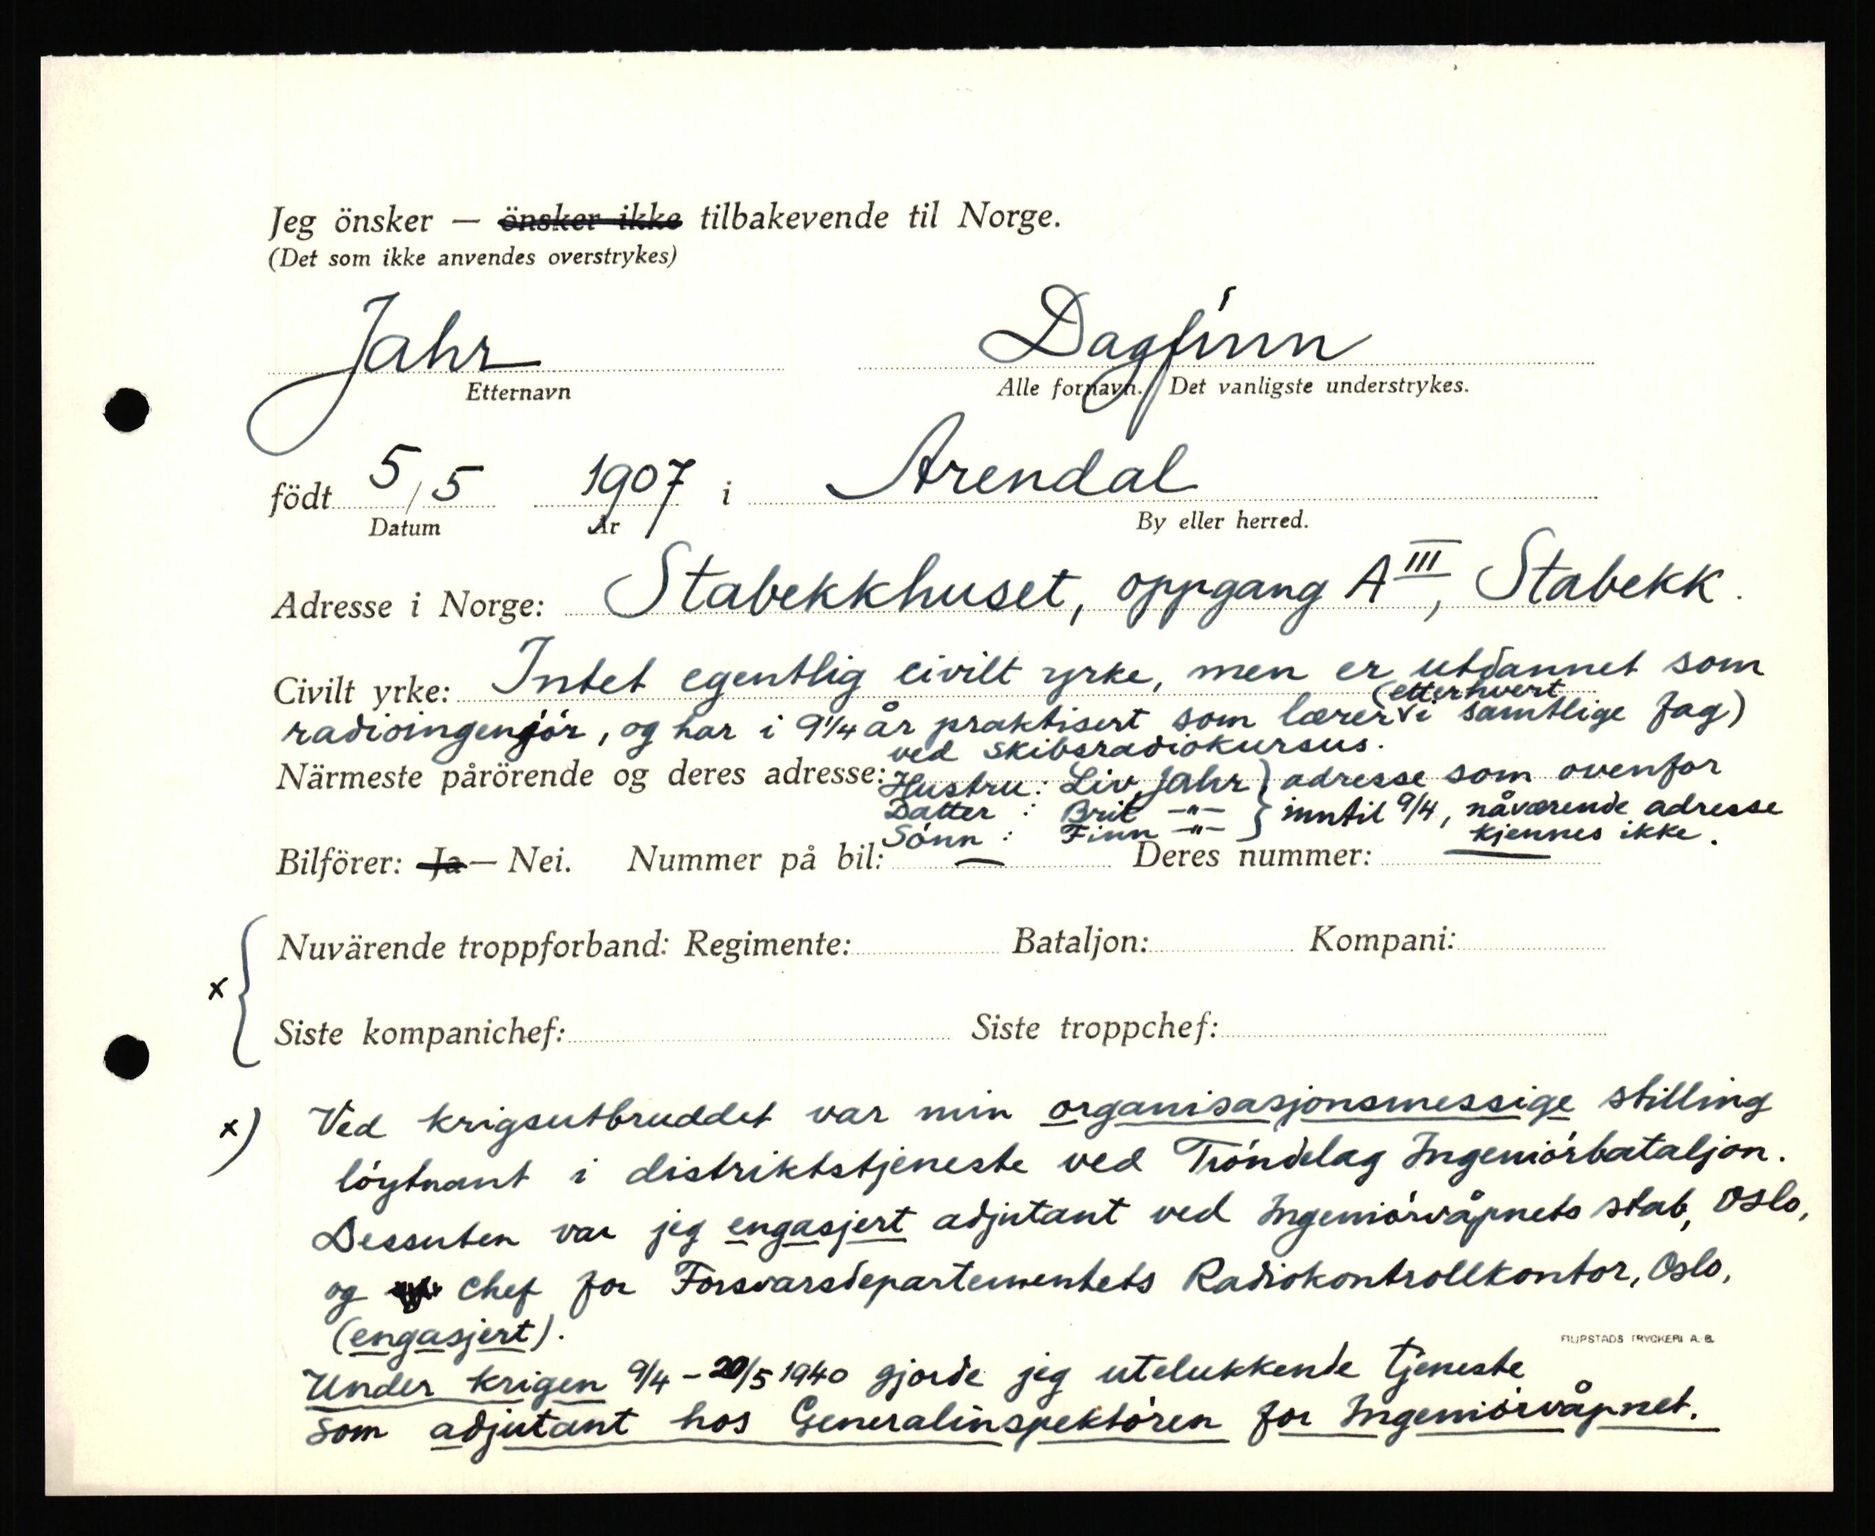 Jeg önsker — önsker ikke tilbakevende til Norge.
(Det som ikke anvendes overstrykes)
Jahr Dagfinn
Etternavn Alle fornavn. Det vanligste understrykes.
födt 5/5 1907 i Arendal
Datum År By eller herred.
Adresse i Norge: Stabekkhuset, oppgang A III, Stabekk.
Civilt yrke: Intet egentlig civilt yrke, men er utdannet som
radioingenjör, og har i 9 1/4 år praktisert som lærer (etterhvert i samtlige fag)
ved skibsradiokursus.
Närmeste pårörende og deres adresse: Hustru: Liv Jahr } adresse som ovenfor
Datter : Brit —"— } inntil 9/4, nåværende adresse
Sönn : Finn —"— kjennes ikke.
Bilförer: Ja — Nei. Nummer på bil: — Deres nummer: —
x { Nuvärende troppforband: Regimente: Bataljon: Kompani:
Siste kompanichef: Siste troppchef:
x) Ved krigsutbruddet var min organisasjonsmessige stilling
löytnant i distriktstjeneste ved Tröndelag Ingeniörbataljon.
Dessuten var jeg engasjert adjutant ved Ingeniörvåpnets stab, Oslo,
og chef for Forsvarsdepartementets Radiokontrollkontor, Oslo,
(engasjert).
FILIPSTADS TRYCKERI A. B.
Under krigen 9/4 – 20/5 1940 gjorde jeg utelukkende tjeneste
som adjutant hos Generalinspektören for Ingeniörvåpnet.